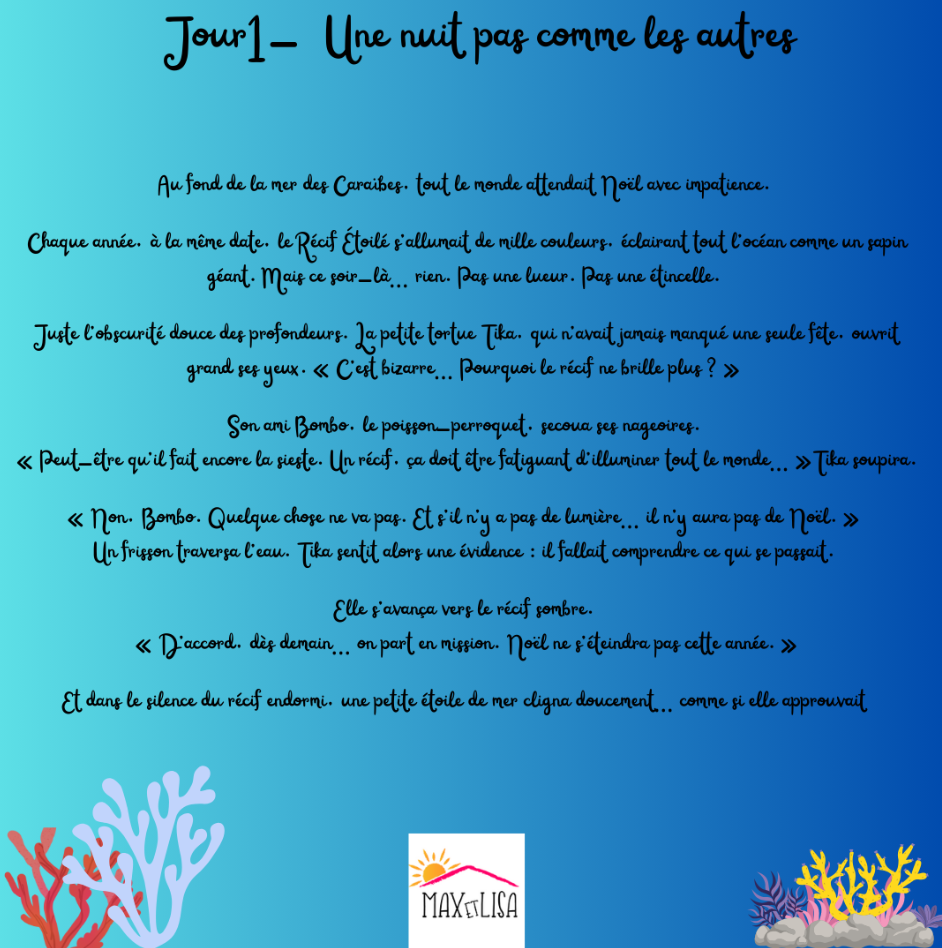 Jour1- Une nuit pas comme les autres
Au fond de la mer des Caraïbes, tout le monde attendait Noël avec impatience.
Chaque année, à la même date, le Récif Étoilé s'allumait de mille couleurs, éclairant tout l'océan comme un sapin
géant. Mais ce soir-là... rien. Pas une lueur. Pas une étincelle.
Juste l'obscurité douce des profondeurs. La petite tortue Tika, qui n'avait jamais manqué une seule fête, ouvrit
grand ses yeux. « C'est bizarre... Pourquoi le récif ne brille plus ? »
Son ami Bombo, le poisson-perroquet, secoua ses nageoires.
« Peut-être qu'il fait encore la sieste. Un récif, ça doit être fatiguant d'illuminer tout le monde... » Tika soupira.
« Non, Bombo. Quelque chose ne va pas. Et s'il n'y a pas de lumière... il n'y aura pas de Noël. »
Un frisson traversa l'eau. Tika sentit alors une évidence : il fallait comprendre ce qui se passait.
Elle s'avança vers le récif sombre.
« D'accord, dès demain... on part en mission. Noël ne s'éteindra pas cette année. »
Et dans le silence du récif endormi, une petite étoile de mer cligna doucement... comme si elle approuvait
MAX ET LISA